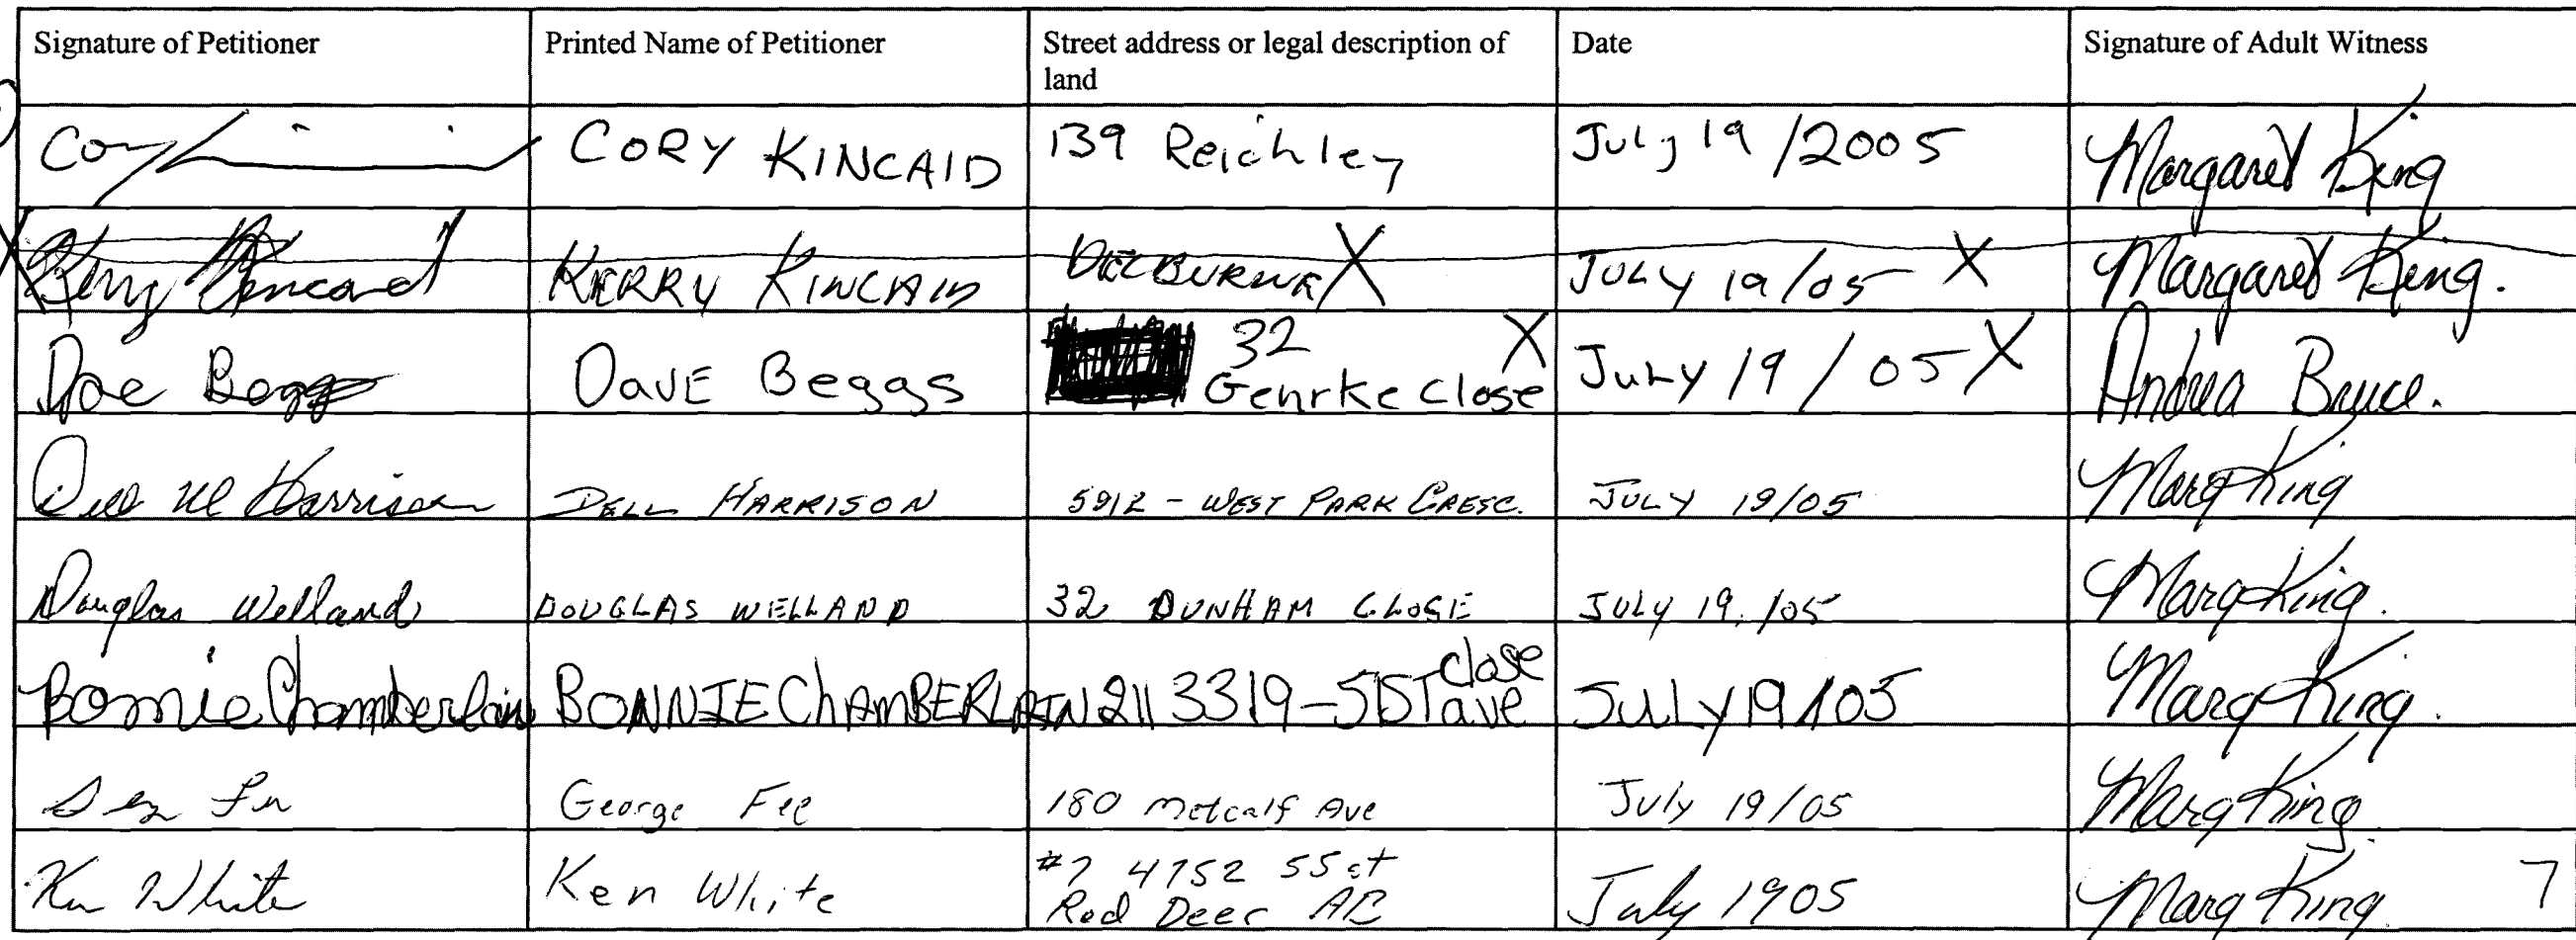 Signature of Petitioner Printed Name of Petitioner Street address or legal description of land Date Signature of Adult Witness
Cory CORY KINCAID 139 Reichley July 19/2005 Margaret King
Kerry Kincaid KERRY KINCAID DELBURNE X JULY 19/05 X Margaret King.
Dave Beggs DAVE Beggs 32 Gehrke Close X JULY 19/05 X Andrea Bruce.
Dell M Harrison DELL HARRISON 5912 - WEST PARK CRESC. JULY 19/05 Marg King
Douglas Welland DOUGLAS WELLAND 32 DUNHAM CLOSE JULY 19./05 Marg King.
Bonnie Chamberlain BONNIE ChAMBERLAIN 211 3319- close ave JULY 19/05 Marg King.
George Fee 180 Metcalf Ave July 19/05 Marg King.
Ken White Ken White #7 4752 55 st Red Deer AB July 1905 Marg King 7